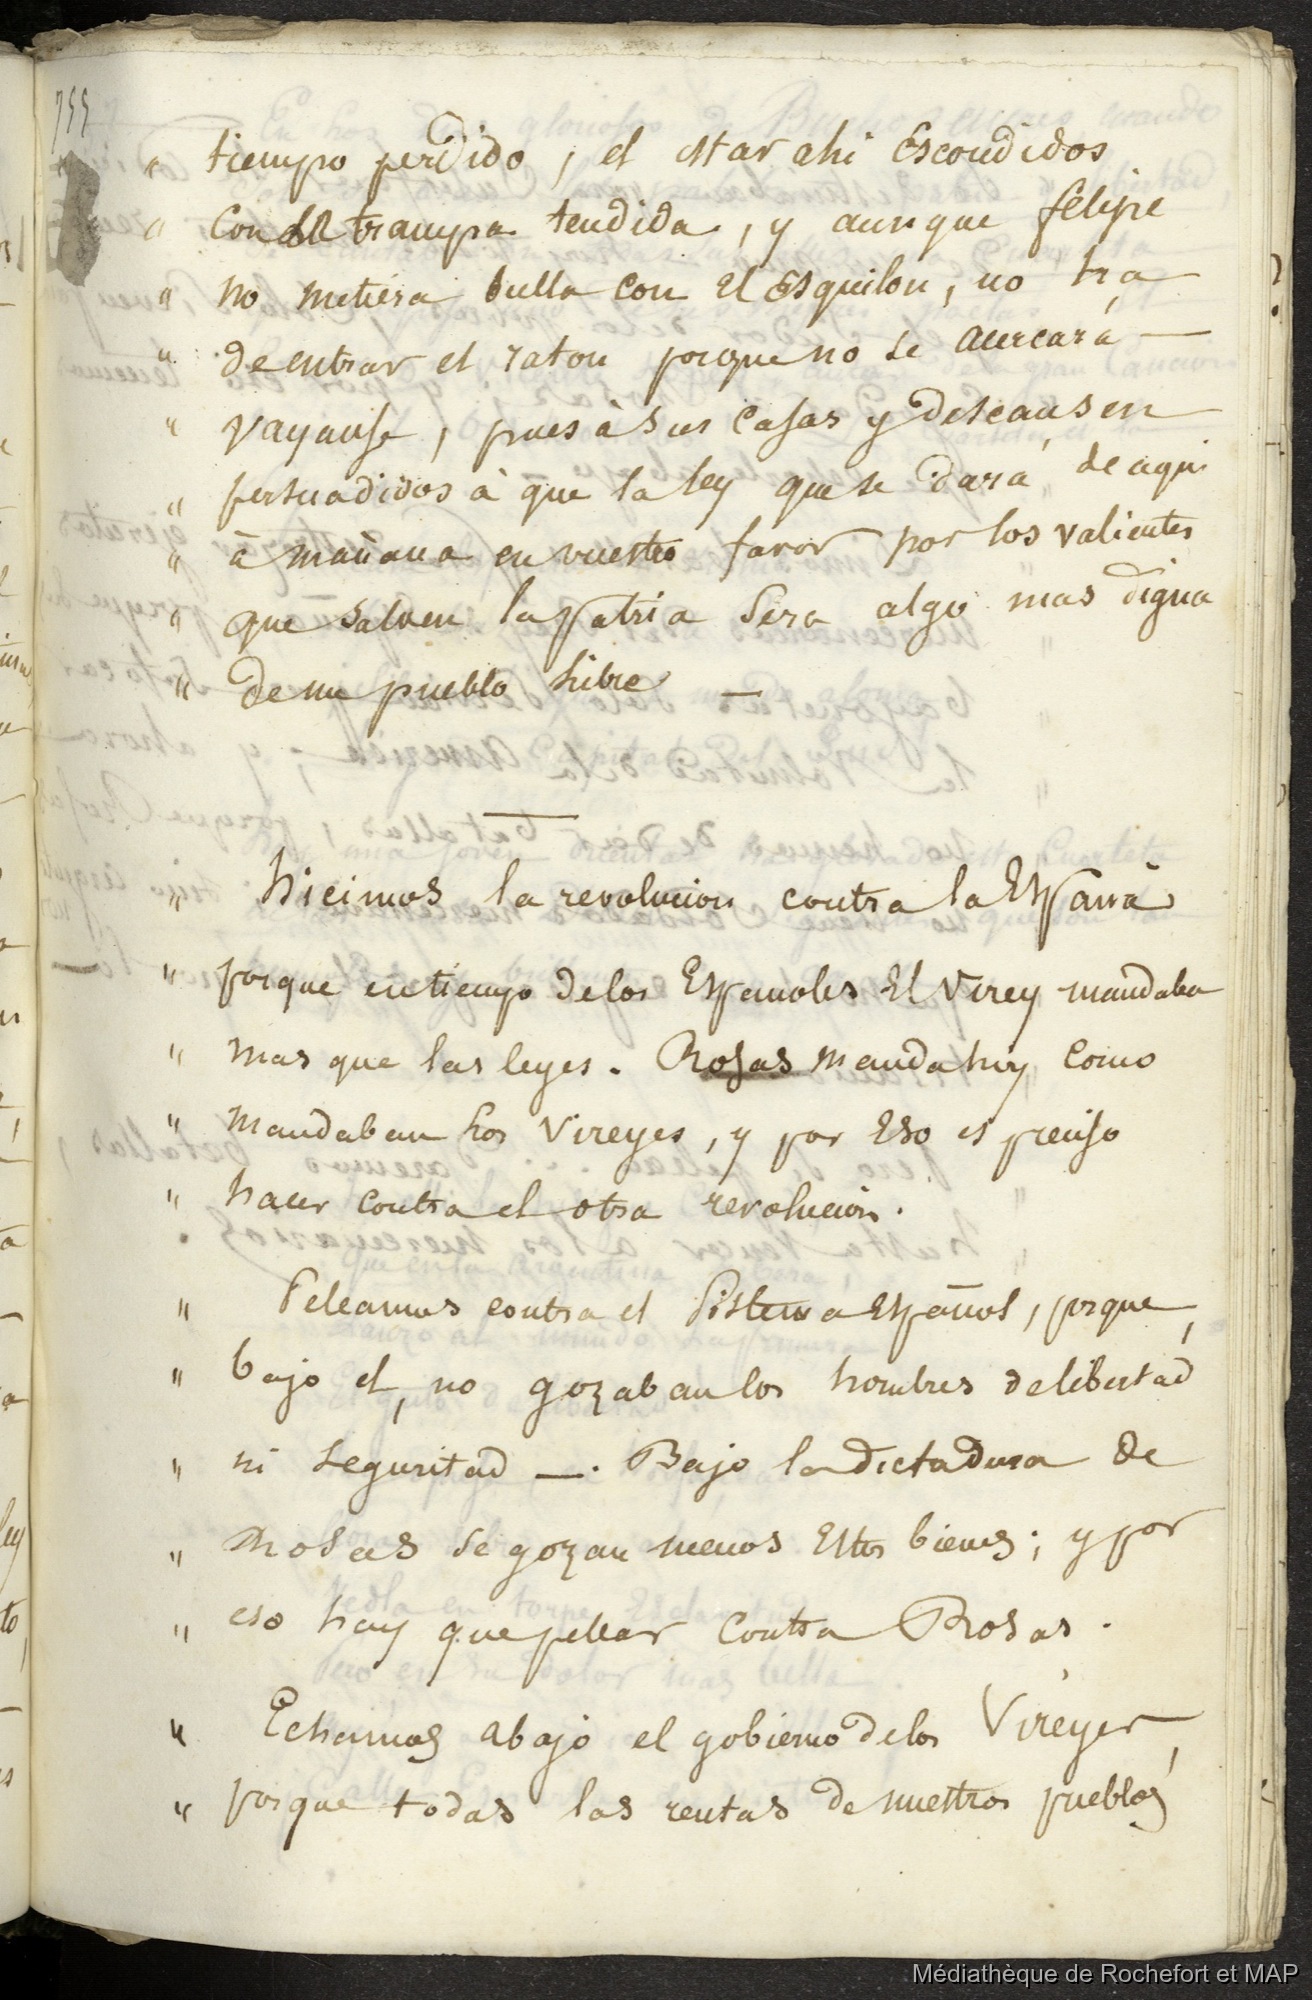 755
" tiempo perdido, el estar ahi Escondidos
" con la trampa tendida, y aunque felipe
" no metiera bulla con el Esquilon, no ha
" de entrar el raton porque no se acercará —
" vayanse, pues à sus casas y descansen
" persuadidos à que la ley que se dará de aqui
" à mañana en vuestro favor por los valientes
" que salven la patria Sera algo mas digna
" de un pueblo libre —
" hicimos la revolucion contra la España
" porque en tiempo de los Españoles El Virey mandaba
" mas que las leyes. Rosas manda hoy como
" mandaban los Vireyes, y por Eso es preciso
" hacer contra el otra revolucion.
" Peleamos contra el Sistema Español, porque,
" bajo el, no gozaban los hombres de libertad
" ni seguritad —. Bajo la dictadura de
" Rosas se gozan menos Estos bienes; y por
" eso hay que pelear contra Rosas.
" Echamos abajo el gobierno de los Vireyes,
" porque todas las rentas de nuestros pueblos
Médiathèque de Rochefort et MAP